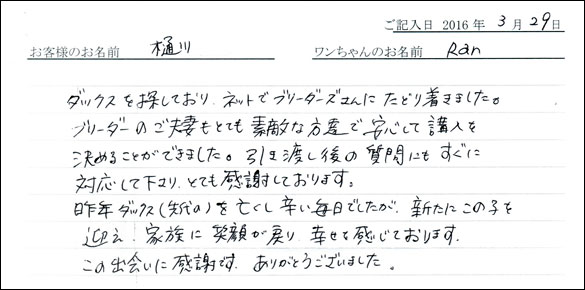 ご記入日 2016 年 3 月 29 日
お客様のお名前 樋川 ワンちゃんのお名前 Ran
ダックスを探しており、ネットでブリーダーズさんにたどり着きました。
ブリーダーのご夫妻もとても素敵な方達で安心して購入を
決めることができました。引き渡し後の質問にもすぐに
対応して下さり、とても感謝しております。
昨年ダックス(先代の)を亡くし辛い毎日でしたが、新たにこの子を
迎え、家族に笑顔が戻り、幸せを感じております。
この出会いに感謝です。ありがとうございました。